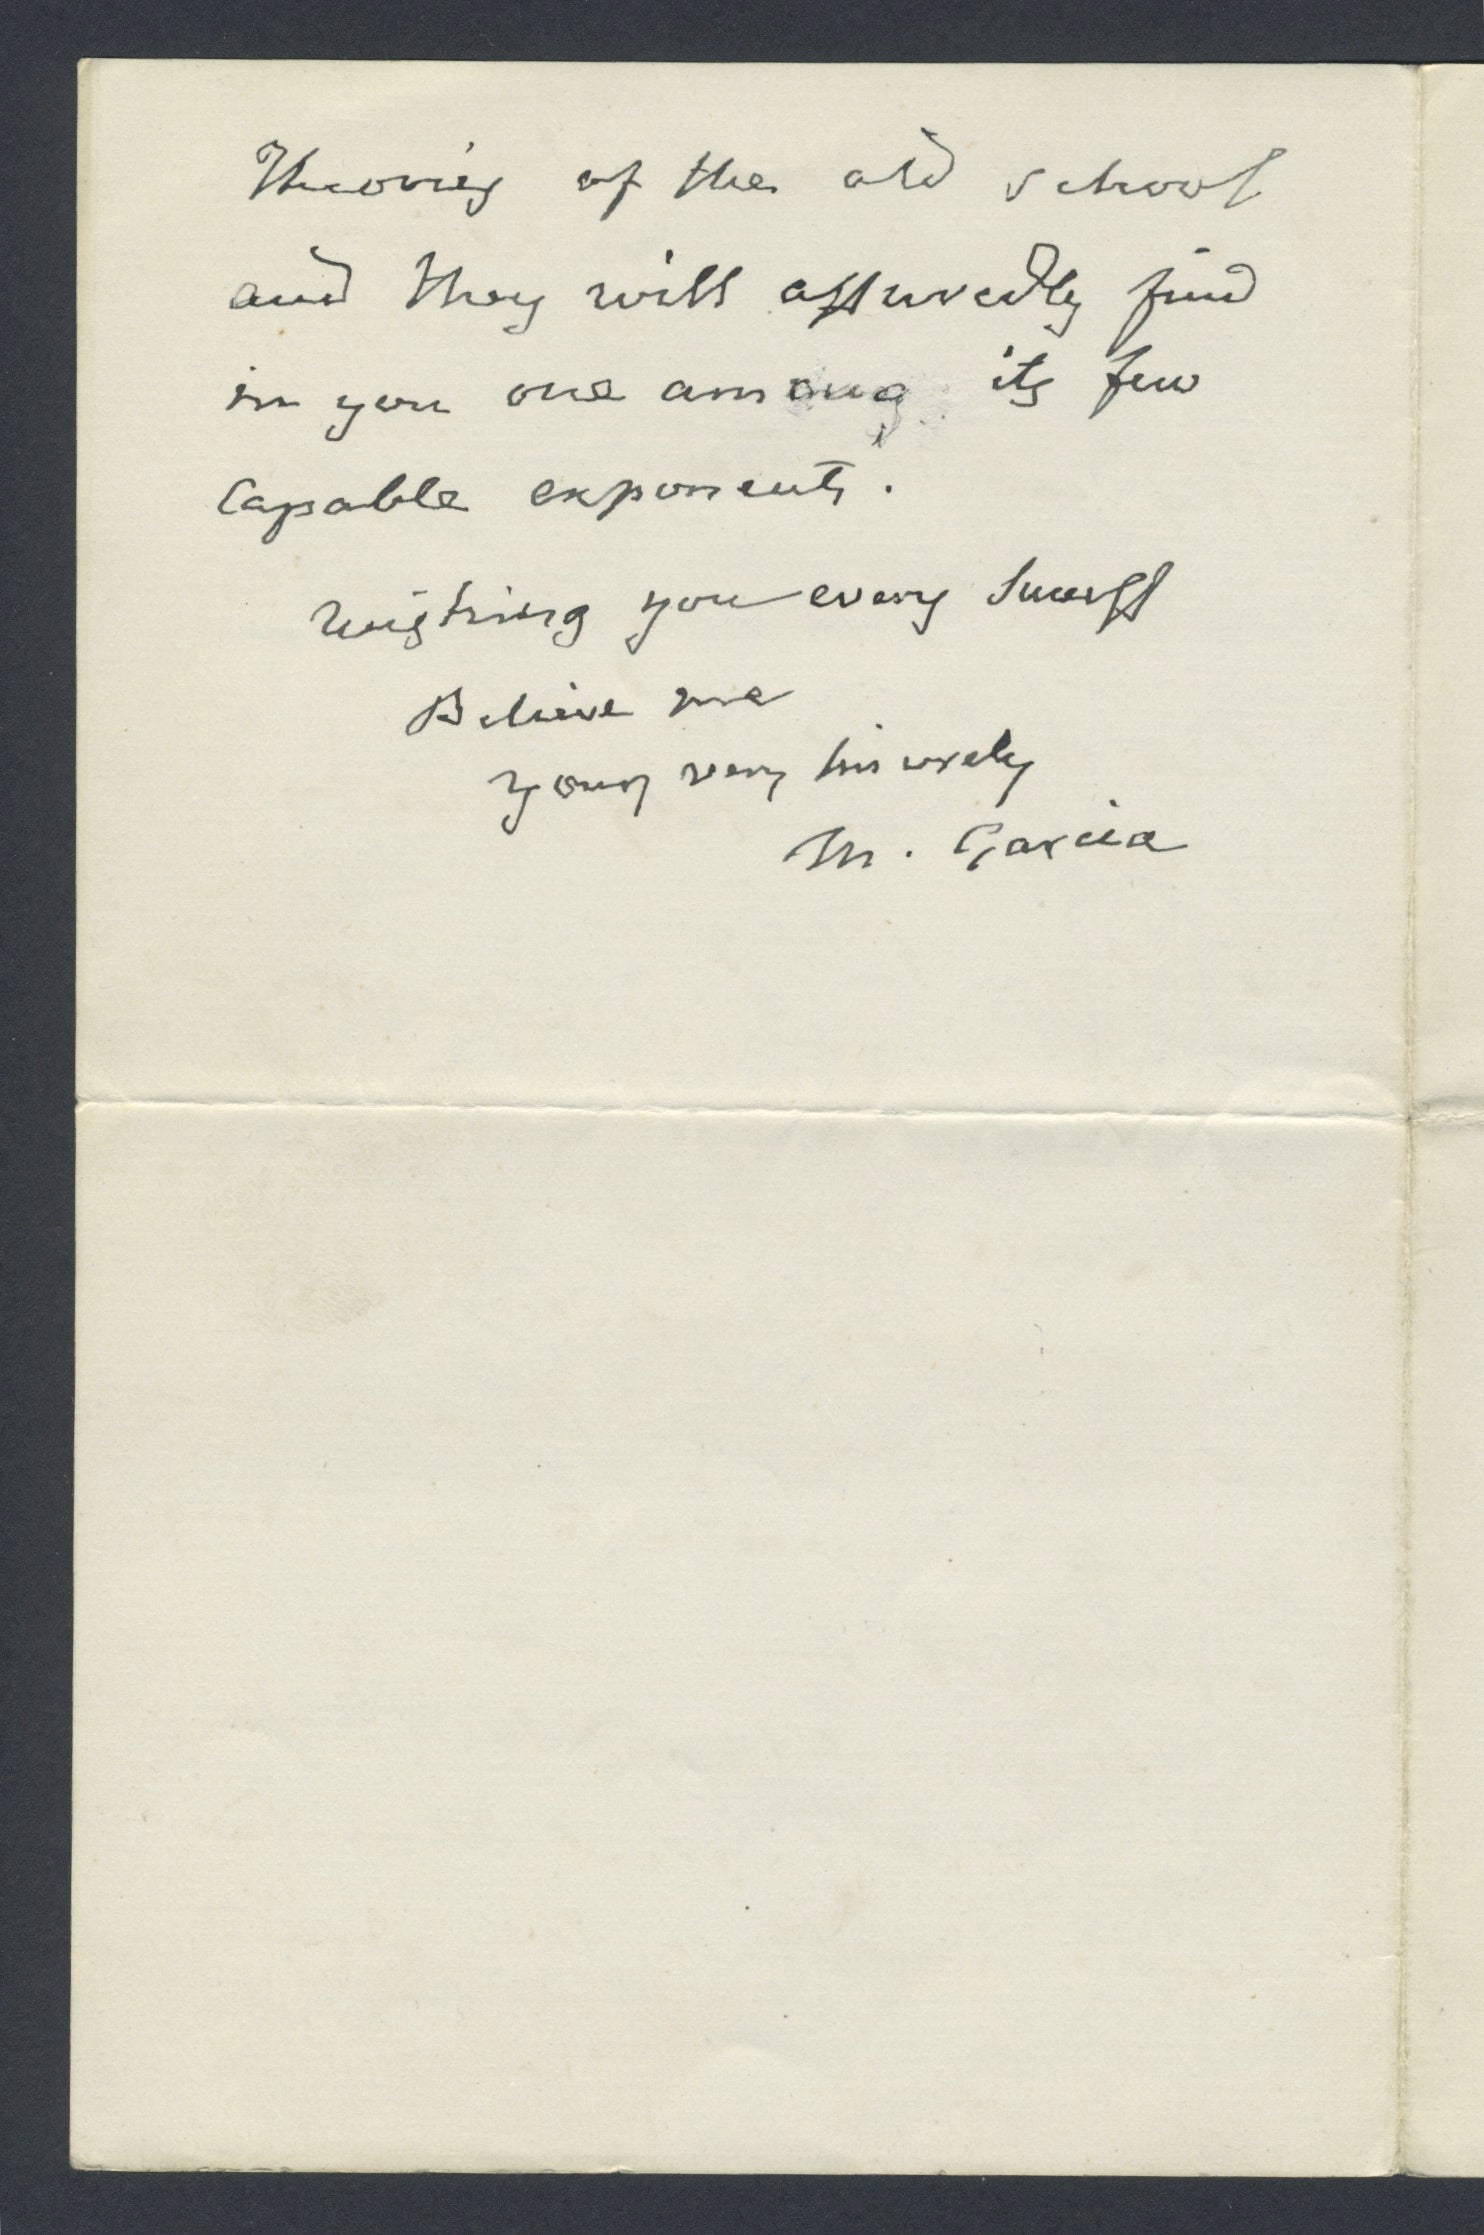 Theories of the old school
and they will assuredly find
in you one among its few
capable exponents.
Wishing you every success
Believe me
yours very sincerely
M. Garcia